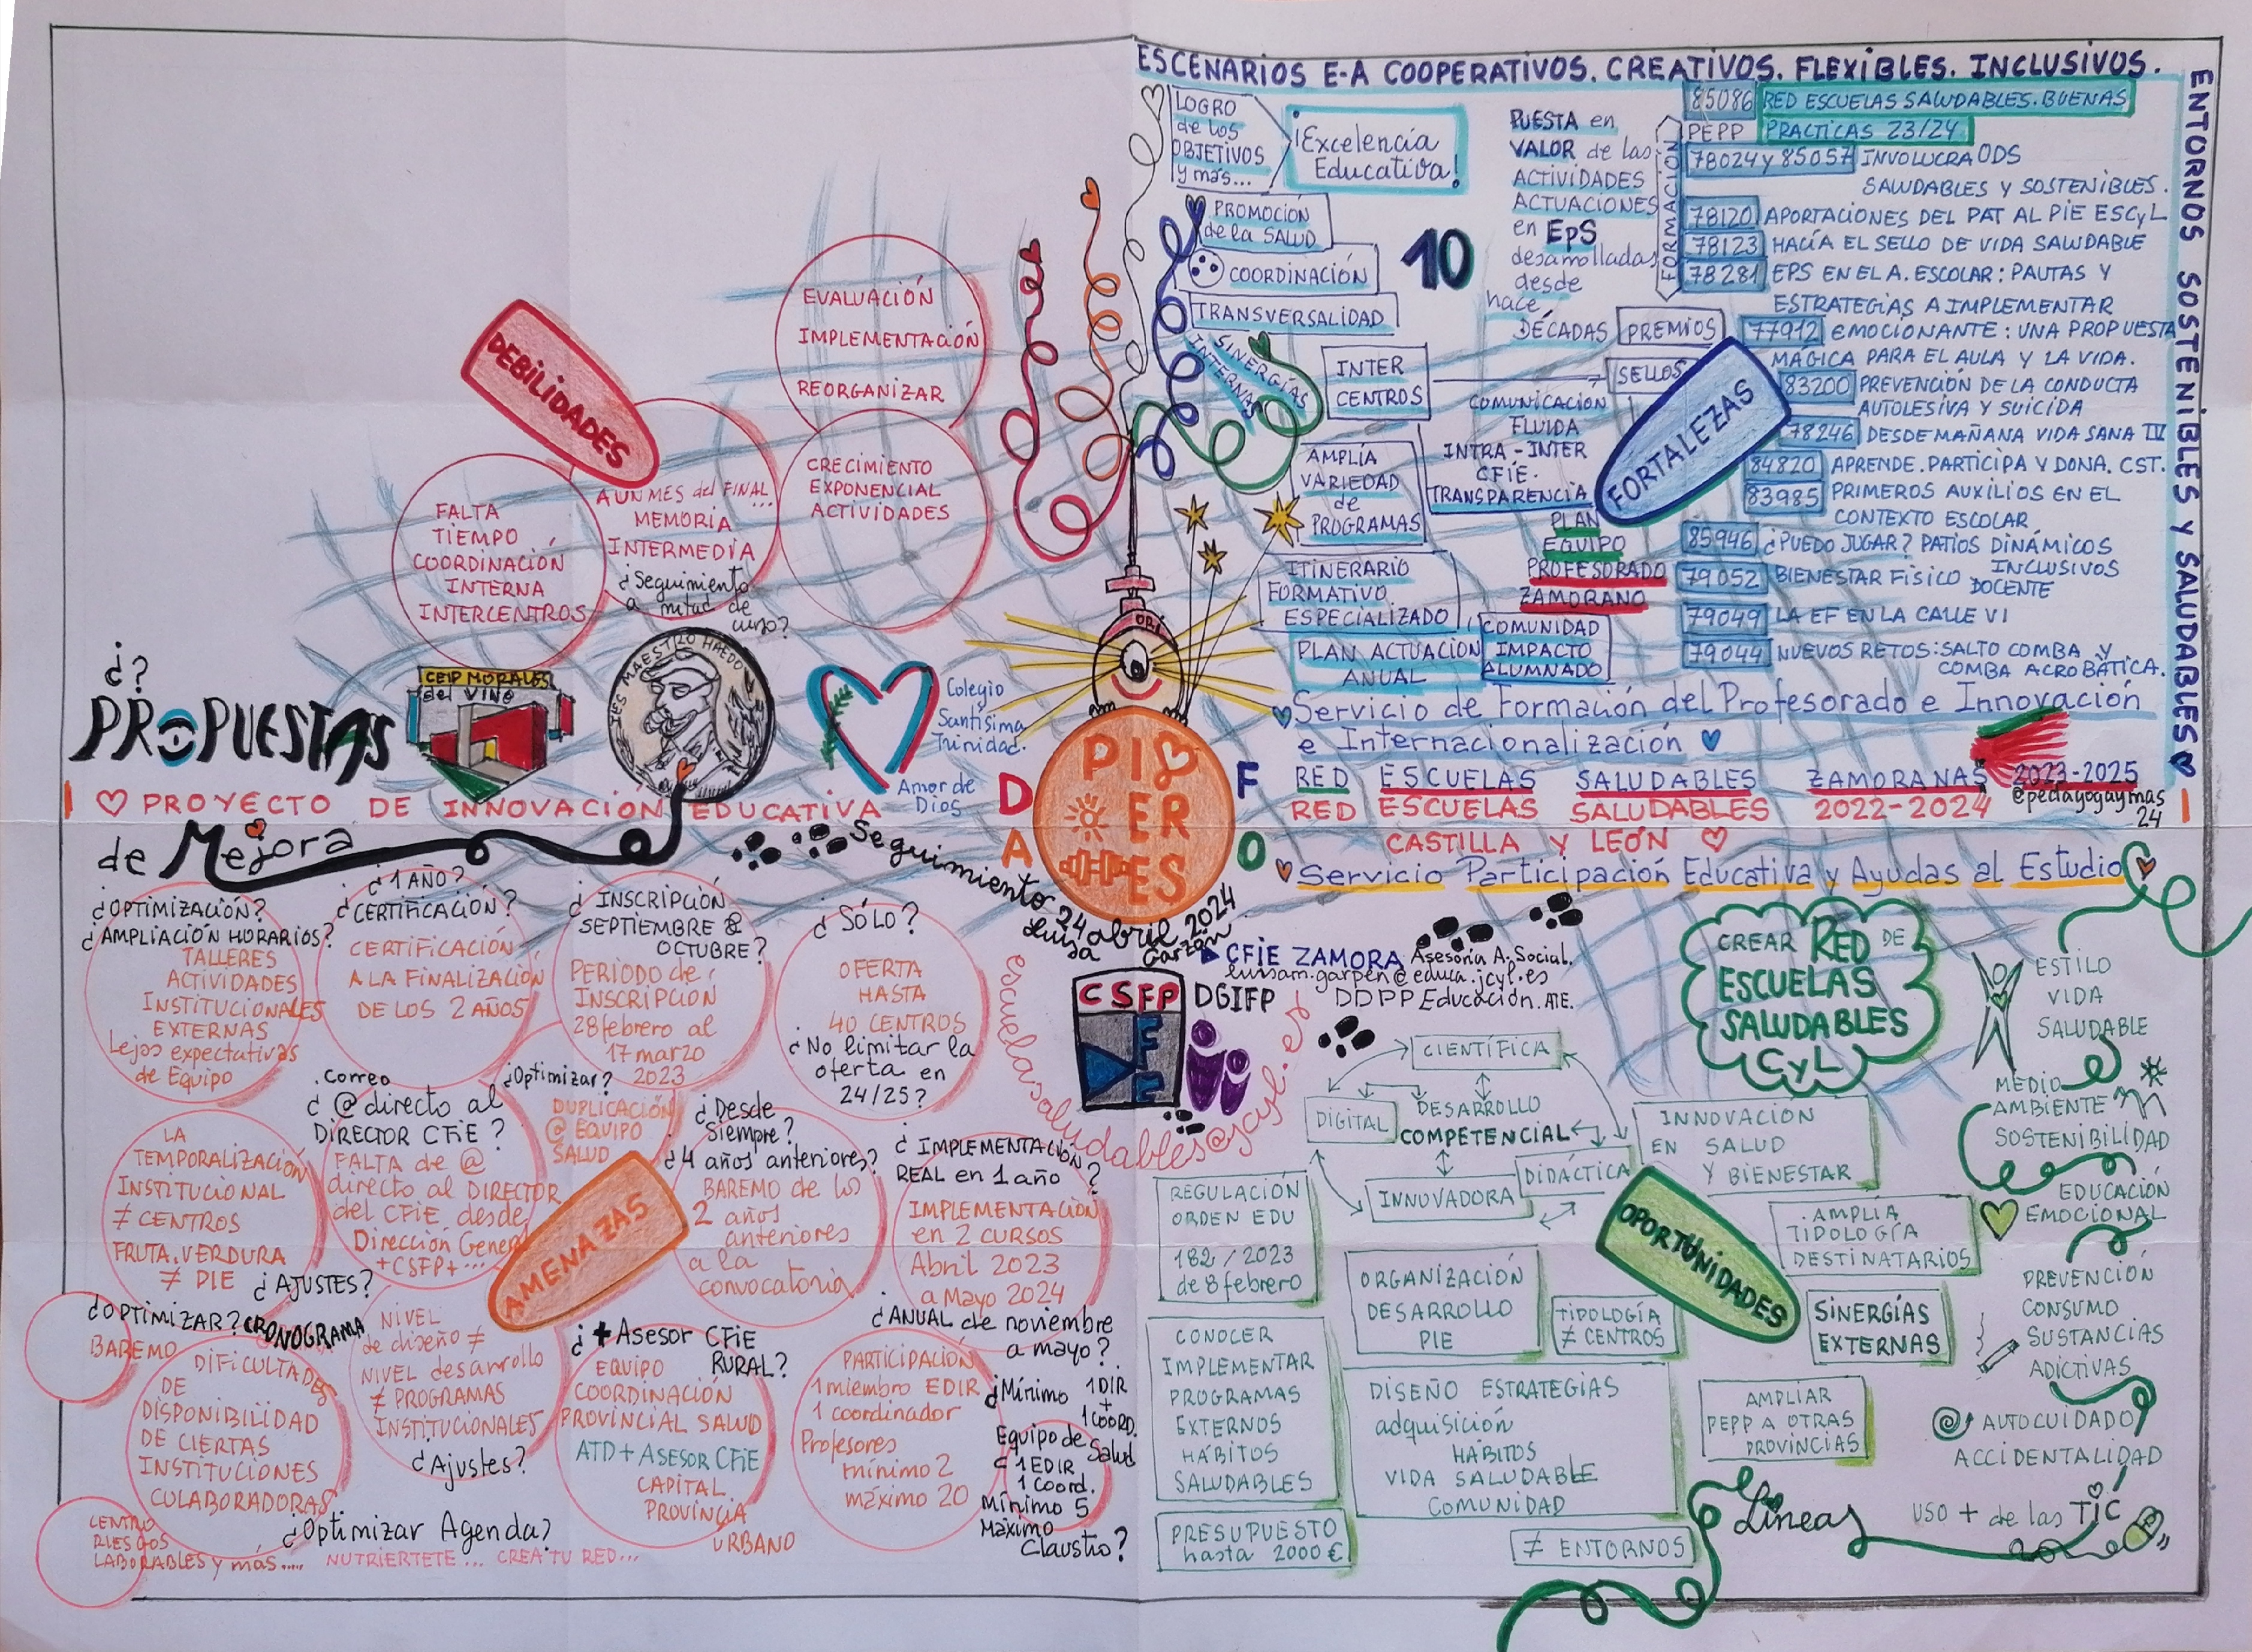 ESCENARIOS E-A COOPERATIVOS. CREATIVOS. FLEXIBLES. INCLUSIVOS.
ENTORNOS SOSTENIBLES Y SALUDABLES
LOGRO
de los
OBJETIVOS
y más...
¡Excelencia
Educativa!
PROMOCIÓN
de la SALUD
COORDINACIÓN
TRANSVERSALIDAD
SINERGÍAS
INTERNAS
10
PUESTA en
VALOR de las
ACTIVIDADES
ACTUACIONES
en EpS
desarrolladas
desde
hace
DÉCADAS
PREMIOS
SELLOS
INTER
CENTROS
COMUNICACIÓN
FLUIDA
INTRA-INTER
CFIE.
TRANSPARENCIA
AMPLÍA
VARIEDAD
de
PROGRAMAS
PLAN
EQUIPO
PROFESORADO
ZAMORANO
ITINERARIO
FORMATIVO
ESPECIALIZADO
COMUNIDAD
IMPACTO
ALUMNADO
PLAN ACTUACIÓN
ANUAL
FORTALEZAS
FORMACIÓN
85086 RED ESCUELAS SALUDABLES. BUENAS
PEPP PRACTICAS 23/24
78024 y 85057 INVOLUCRA ODS
SALUDABLES Y SOSTENIBLES.
78120 APORTACIONES DEL PAT AL PIE ESCyL
78123 HACÍA EL SELLO DE VIDA SALUDABLE
78281 EPS EN EL A. ESCOLAR: PAUTAS Y
ESTRATEGIAS A IMPLEMENTAR
77912 EMOCIONANTE: UNA PROPUESTA
MÁGICA PARA EL AULA Y LA VIDA.
83200 PREVENCIÓN DE LA CONDUCTA
AUTOLESIVA Y SUICIDA
78246 DESDE MAÑANA VIDA SANA IV
84820 APRENDE. PARTICIPA Y DONA. CST.
83985 PRIMEROS AUXILIOS EN EL
CONTEXTO ESCOLAR
85946 ¿PUEDO JUGAR? PATIOS DINÁMICOS
INCLUSIVOS
79052 BIENESTAR FÍSICO DOCENTE
79049 LA EF EN LA CALLE VI
79044 NUEVOS RETOS: SALTO COMBA Y
COMBA ACROBÁTICA.
Servicio de Formación del Profesorado e Innovación
e Internacionalización
RED ESCUELAS SALUDABLES ZAMORANAS 2023-2025
@pedagogaymas
24
RED ESCUELAS SALUDABLES 2022-2024
CASTILLA Y LEÓN
Servicio Participación Educativa y Ayudas al Estudio
DEBILIDADES
EVALUACIÓN
IMPLEMENTACIÓN
REORGANIZAR
CRECIMIENTO
EXPONENCIAL
ACTIVIDADES
A UN MES del FINAL...
MEMORIA
INTERMEDIA
¿Seguimiento
a mitad de
curso?
FALTA
TIEMPO
COORDINACIÓN
INTERNA
INTERCENTROS
CEIP MORALES
del VINO
IES MAESTRO HAEDO
Colegio
Santísima
Trinidad.
Amor de
Dios
¿?
PROPUESTAS
de Mejora
I PROYECTO DE INNOVACIÓN EDUCATIVA I
PI
ER
ES
D
A
F
O
Seguimiento 24 abril 2024
Luisa Garzón
CFIE ZAMORA Asesoría A. Social.
luisam.garpen@educa.jcyl.es
DGIFP DDPP Educación. ATE.
CSFP
escuelasaludables@jcyl.es
¿OPTIMIZACIÓN?
¿AMPLIACIÓN HORARIOS?
TALLERES
ACTIVIDADES
INSTITUCIONALES
EXTERNAS
Lejos expectativas
de Equipo
¿1 AÑO?
¿CERTIFICACIÓN?
CERTIFICACIÓN
A LA FINALIZACIÓN
DE LOS 2 AÑOS
¿INSCRIPCIÓN
SEPTIEMBRE &
OCTUBRE?
PERIODO de
INSCRIPCIÓN
28 febrero al
17 marzo
2023
¿SÓLO?
OFERTA
HASTA
40 CENTROS
¿No limitar la
oferta en
24/25?
LA
TEMPORALIZACIÓN
INSTITUCIONAL
≠ CENTROS
FRUTA. VERDURA
≠ PIE
¿AJUSTES?
.Correo
¿@directo al
DIRECTOR CFIE?
FALTA de @
directo al DIRECTOR
del CFIE, desde
Dirección General
+CSFP+...
¿Optimizar?
DUPLICACIÓN
@ EQUIPO
SALUD
AMENAZAS
¿Desde
Siempre?
¿4 años anteriores?
BAREMO de los
2 años
anteriores
a la
convocatoria
¿IMPLEMENTACIÓN
REAL en 1 año?
IMPLEMENTACIÓN
en 2 CURSOS
Abril 2023
a Mayo 2024
¿ANUAL de noviembre
a mayo?
¿OPTIMIZAR? CRONOGRAMA
BAREMO
DIFICULTADES
DE
DISPONIBILIDAD
DE CIERTAS
INSTITUCIONES
COLABORADORAS
NIVEL
de diseño ≠
NIVEL desarrollo
≠ PROGRAMAS
INSTITUCIONALES
¿Ajustes?
¿+Asesor CFIE
RURAL?
EQUIPO
COORDINACIÓN
PROVINCIAL SALUD
ATD + ASESOR CFIE
CAPITAL
PROVINCIA
URBANO
PARTICIPACIÓN
1 miembro EDIR
1 coordinador
Profesores
mínimo 2
máximo 20
¿Mínimo 1 DIR
+
1 COORD.
Equipo de Salud
1 EDIR
1 Coord.
Mínimo 5
Máximo
Claustro?
CENTRO
RIESGOS
LABORABLES y más.....
¿Optimizar Agenda?
NUTRIERTETE... CREA TU RED...
CREAR RED DE
ESCUELAS
SALUDABLES
CyL
CIENTÍFICA
DIGITAL
DESARROLLO
COMPETENCIAL
DIDÁCTICA
INNOVADORA
INNOVACIÓN
EN SALUD
Y BIENESTAR
REGULACIÓN
ORDEN EDU
182/2023
de 8 febrero
ORGANIZACIÓN
DESARROLLO
PIE
TIPOLOGÍA
≠ CENTROS
OPORTUNIDADES
AMPLIA
TIPOLOGÍA
DESTINATARIOS
SINERGÍAS
EXTERNAS
CONOCER
IMPLEMENTAR
PROGRAMAS
EXTERNOS
HÁBITOS
SALUDABLES
DISEÑO ESTRATEGIAS
adquisición
HÁBITOS
VIDA SALUDABLE
COMUNIDAD
AMPLIAR
PEPP A OTRAS
PROVINCIAS
PRESUPUESTO
hasta 2000 €
≠ ENTORNOS
Líneas
ESTILO
VIDA
SALUDABLE
MEDIO
AMBIENTE
SOSTENIBILIDAD
EDUCACIÓN
EMOCIONAL
PREVENCIÓN
CONSUMO
SUSTANCIAS
ADICTIVAS
AUTOCUIDADO
ACCIDENTALIDAD
USO + de las TIC